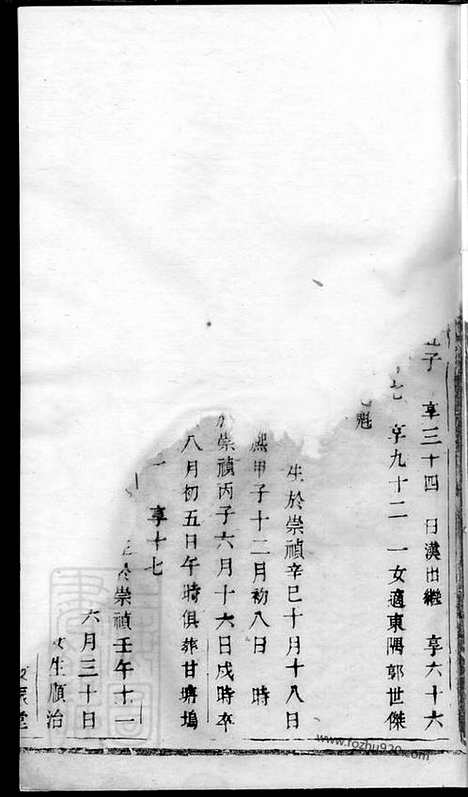 子　享三十四　曰漢出繼　享六十六
七　享九十二　一女適東隅郭世傑
魁
生於崇禎辛巳十月十八日
熙甲子十二月初八日　時
於崇禎丙子六月十六日戌時卒
八月初五日午時俱葬甘塢
享十七
於崇禎壬午十一
六月三十日
生順治
堂
www.fozhu920.com